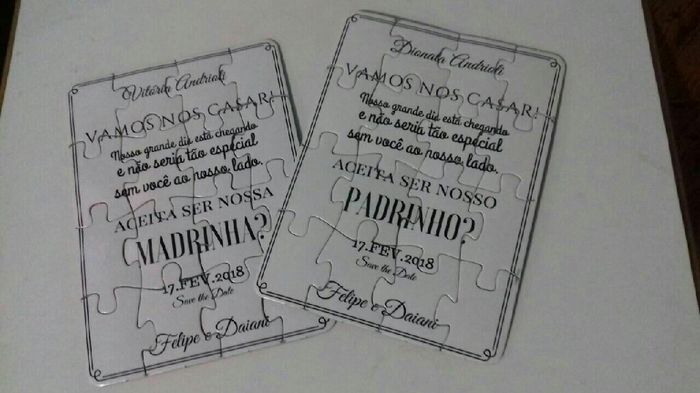 Vitória Andrioli
VAMOS NOS CASAR!
Nosso grande dia está chegando
e não seria tão especial
sem você ao nosso lado.
ACEITA SER NOSSA
MADRINHA?
17.FEV.2018
Save the Date
Felipe e Daiani
Dionata Andrioli
VAMOS NOS CASAR!
Nosso grande dia está chegando
e não seria tão especial
sem você ao nosso lado.
ACEITA SER NOSSO
PADRINHO?
17.FEV.2018
Save the Date
Felipe e Daiani